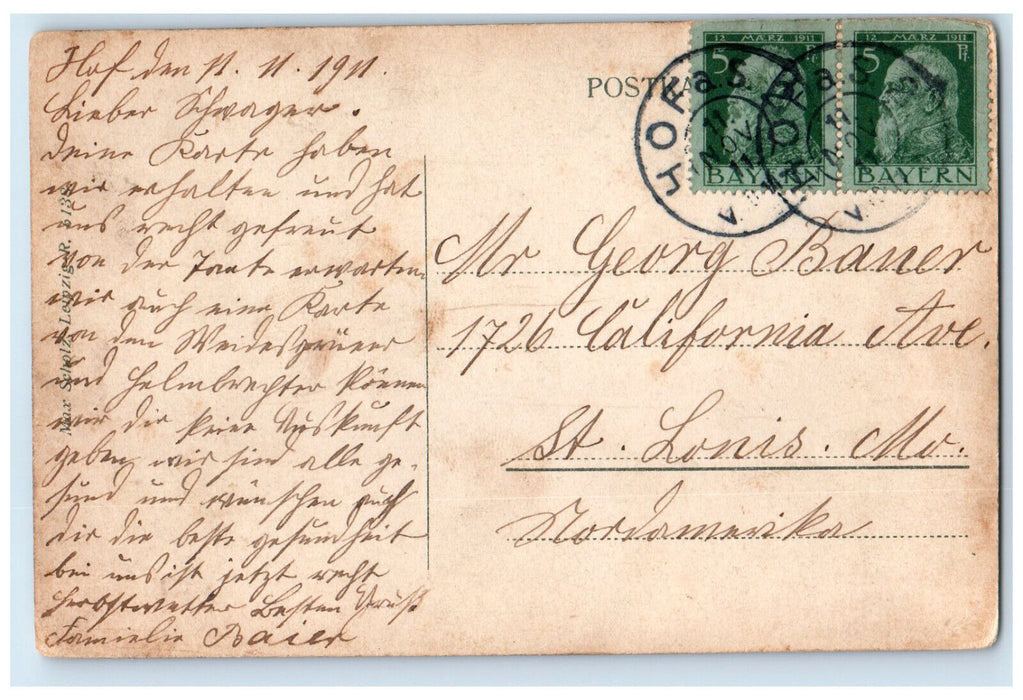 Hof den 11. 11. 1911.
Lieber Schwager.
deine Karte haben
wir erhalten und hat
uns recht gefreut
von der Tante erwarten
wir auch eine Karte
von den Weidesgrüner
und Helmbrechter können
wir dir keine Auskunft
geben, wir sind alle ge-
sund und wünschen auch
dir die beste gesundheit
bei uns ist jetzt recht
herbstwetter Besten Gruß
Familie Baier
Max Scholz, Leipzig-R.
POSTKA
12 MÄRZ 1911
5 Pf.
BAYERN
12 MÄRZ 1911
5 Pf.
BAYERN
HOF a.S.
11 NOV
11
HOF a.S.
11 NOV
11
Mr Georg Bauer
1726 California Ave.
St. Louis. Mo.
Nordamerika